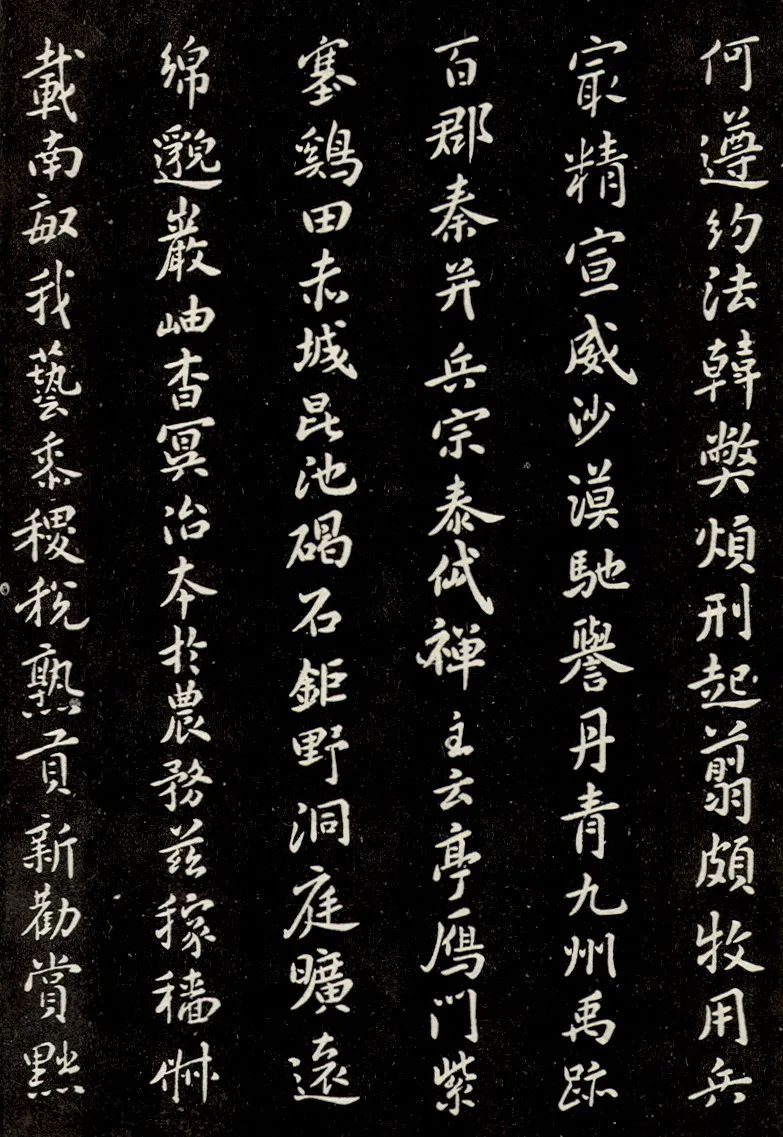 何遵約法韓弊煩刑起翦頗牧用兵
㝡精宣威沙漠馳譽丹青九州禹跡
百郡秦并兵宗泰岱禪主云亭鴈門紫
塞鷄田赤城昆池碣石鉅野洞庭曠遠
綿邈巖岫杳冥治本於農務茲稼穡俶
載南畝我藝黍稷稅熟貢新勸賞黜